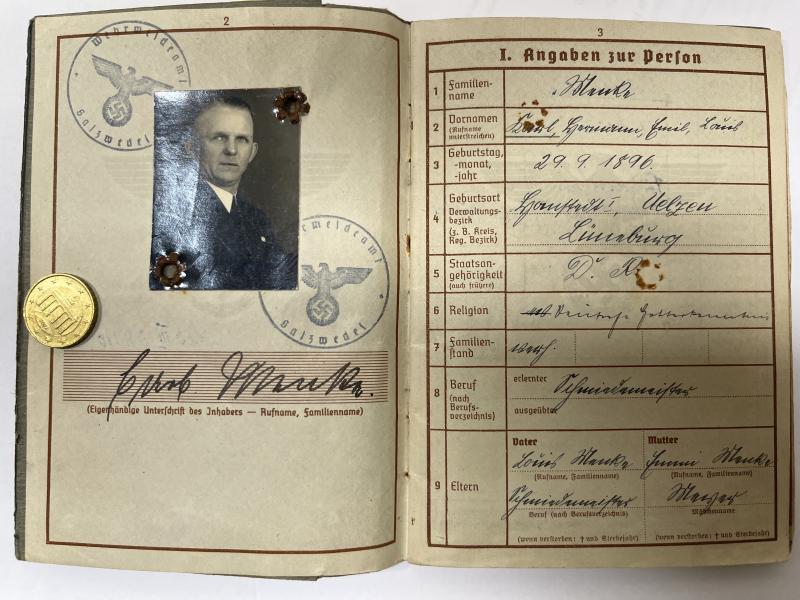 2
Wehrmeldeamt
Salzwedel
Wehrmeldeamt
Salzwedel
Menke.
(Eigenhändige Unterschrift des Inhabers — Rufname, Familienname)
3
I. Angaben zur Person
1 Familien-
name
Menke
2 Vornamen
(Rufname
unterstreichen)
Karl, Hermann, Emil, Louis
3 Geburtstag,
-monat,
-jahr
29. 9. 1896.
4 Geburtsort
Verwaltungs-
bezirk
(z. B. Kreis,
Reg. Bezirk)
Hanstedt I, Uelzen
Lüneburg
5 Staatsan-
gehörigkeit
(auch frühere)
D. R.
6 Religion
Deutsche
7 Familien-
stand
verh.
8 Beruf
(nach
Berufs-
verzeichnis)
erlernter
Schmiedemeister
ausgeübter
9 Eltern
Vater
Louis Menke
(Rufname, Familienname)
Schmiedemeister
Beruf (nach Berufsverzeichnis)
(wenn verstorben: † und Sterbejahr)
Mutter
Emmi Menke
(Rufname, Familienname)
Meyer
Mädchenname
(wenn verstorben: † und Sterbejahr)